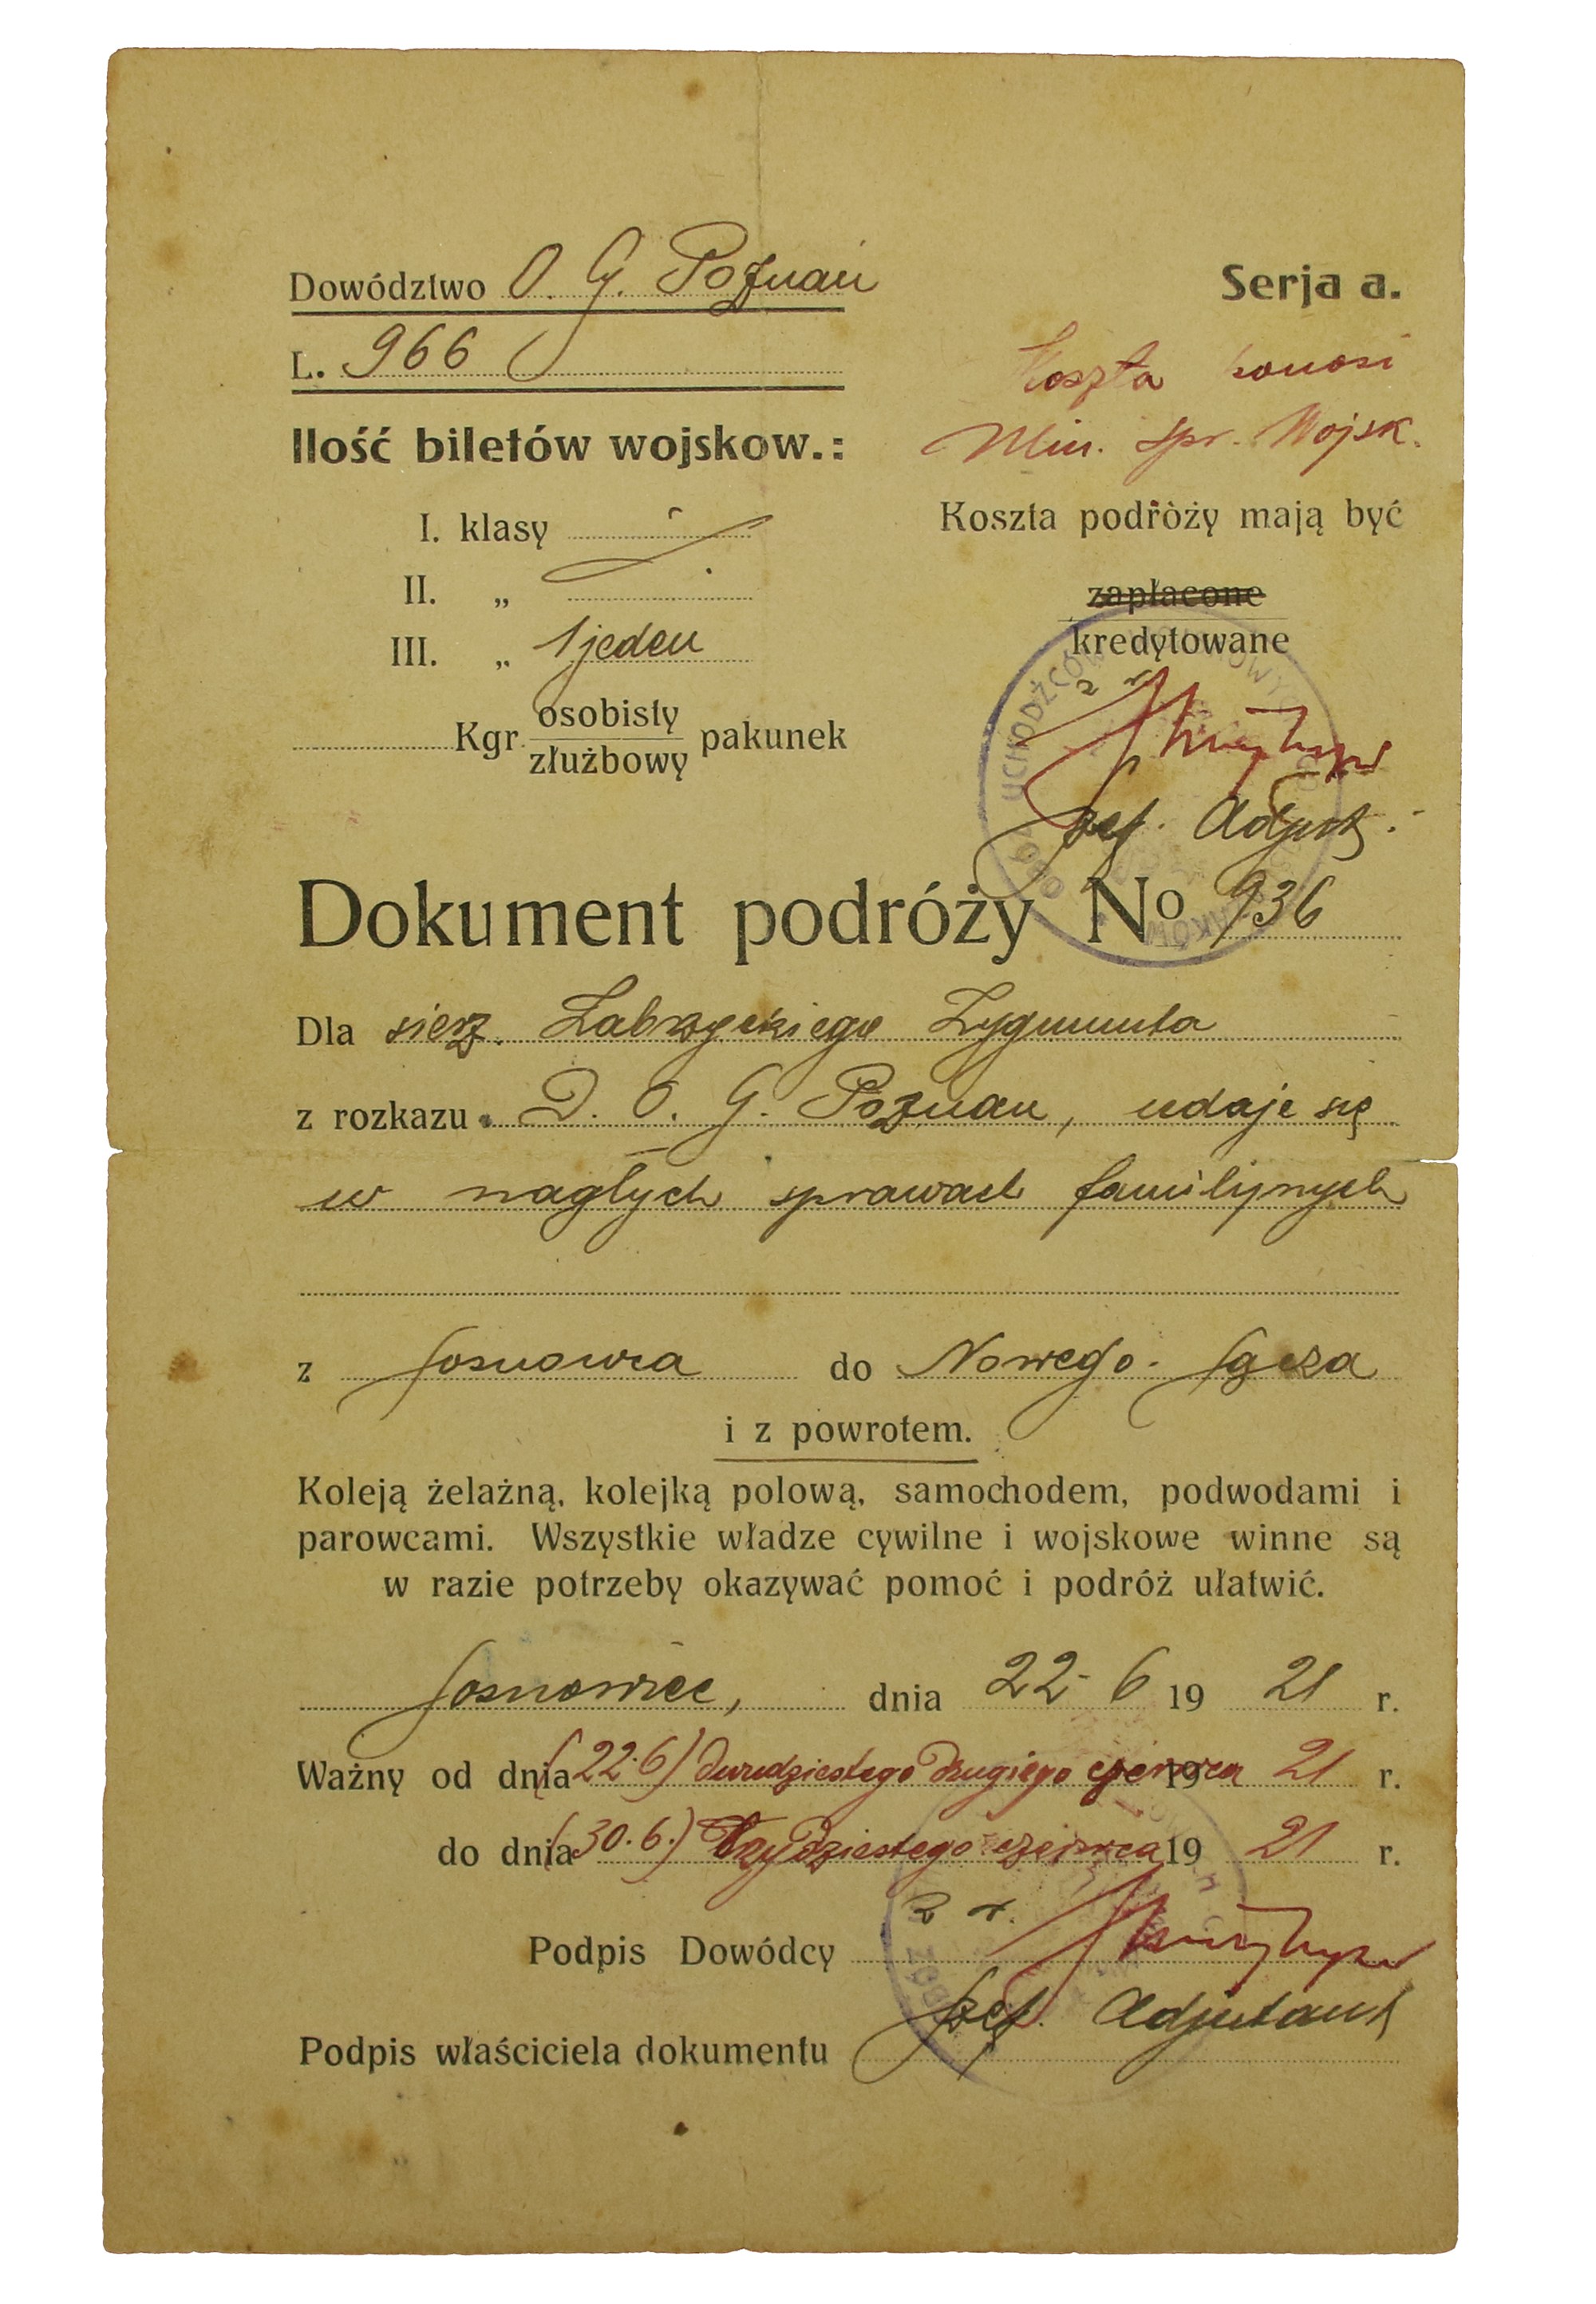 Dowództwo O. G. Poznań
Serja a.
L. 966
Koszta ponosi
Min. spr. Wojsk.
Ilość biletów wojskow.:
Koszta podróży mają być
I. klasy
zapłacone
II. „
kredytowane
III. „ 1 jeden
Kgr. osobisty pakunek
złużbowy
szef. Adjut.
Dokument podróży No 936
Dla sierz. Zabrzyckiego Zygmunta
z rozkazu D. O. G. Poznań, udaje się
w nagłych sprawach familijnych
z Sosnowca do Nowego-Sącza
i z powrotem.
Koleją żelaźną, kolejką polową, samochodem, podwodami i
parowcami. Wszystkie władze cywilne i wojskowe winne są
w razie potrzeby okazywać pomoć i podróż ułatwić.
Sosnowiec, dnia 22-6 19 21 r.
Ważny od dnia (22.6) dwudziestego drugiego czerwca 19 21 r.
do dnia (30.6.) trzydziestego czerwca 19 21 r.
Podpis Dowódcy
szef. Adjutant
Podpis właściciela dokumentu